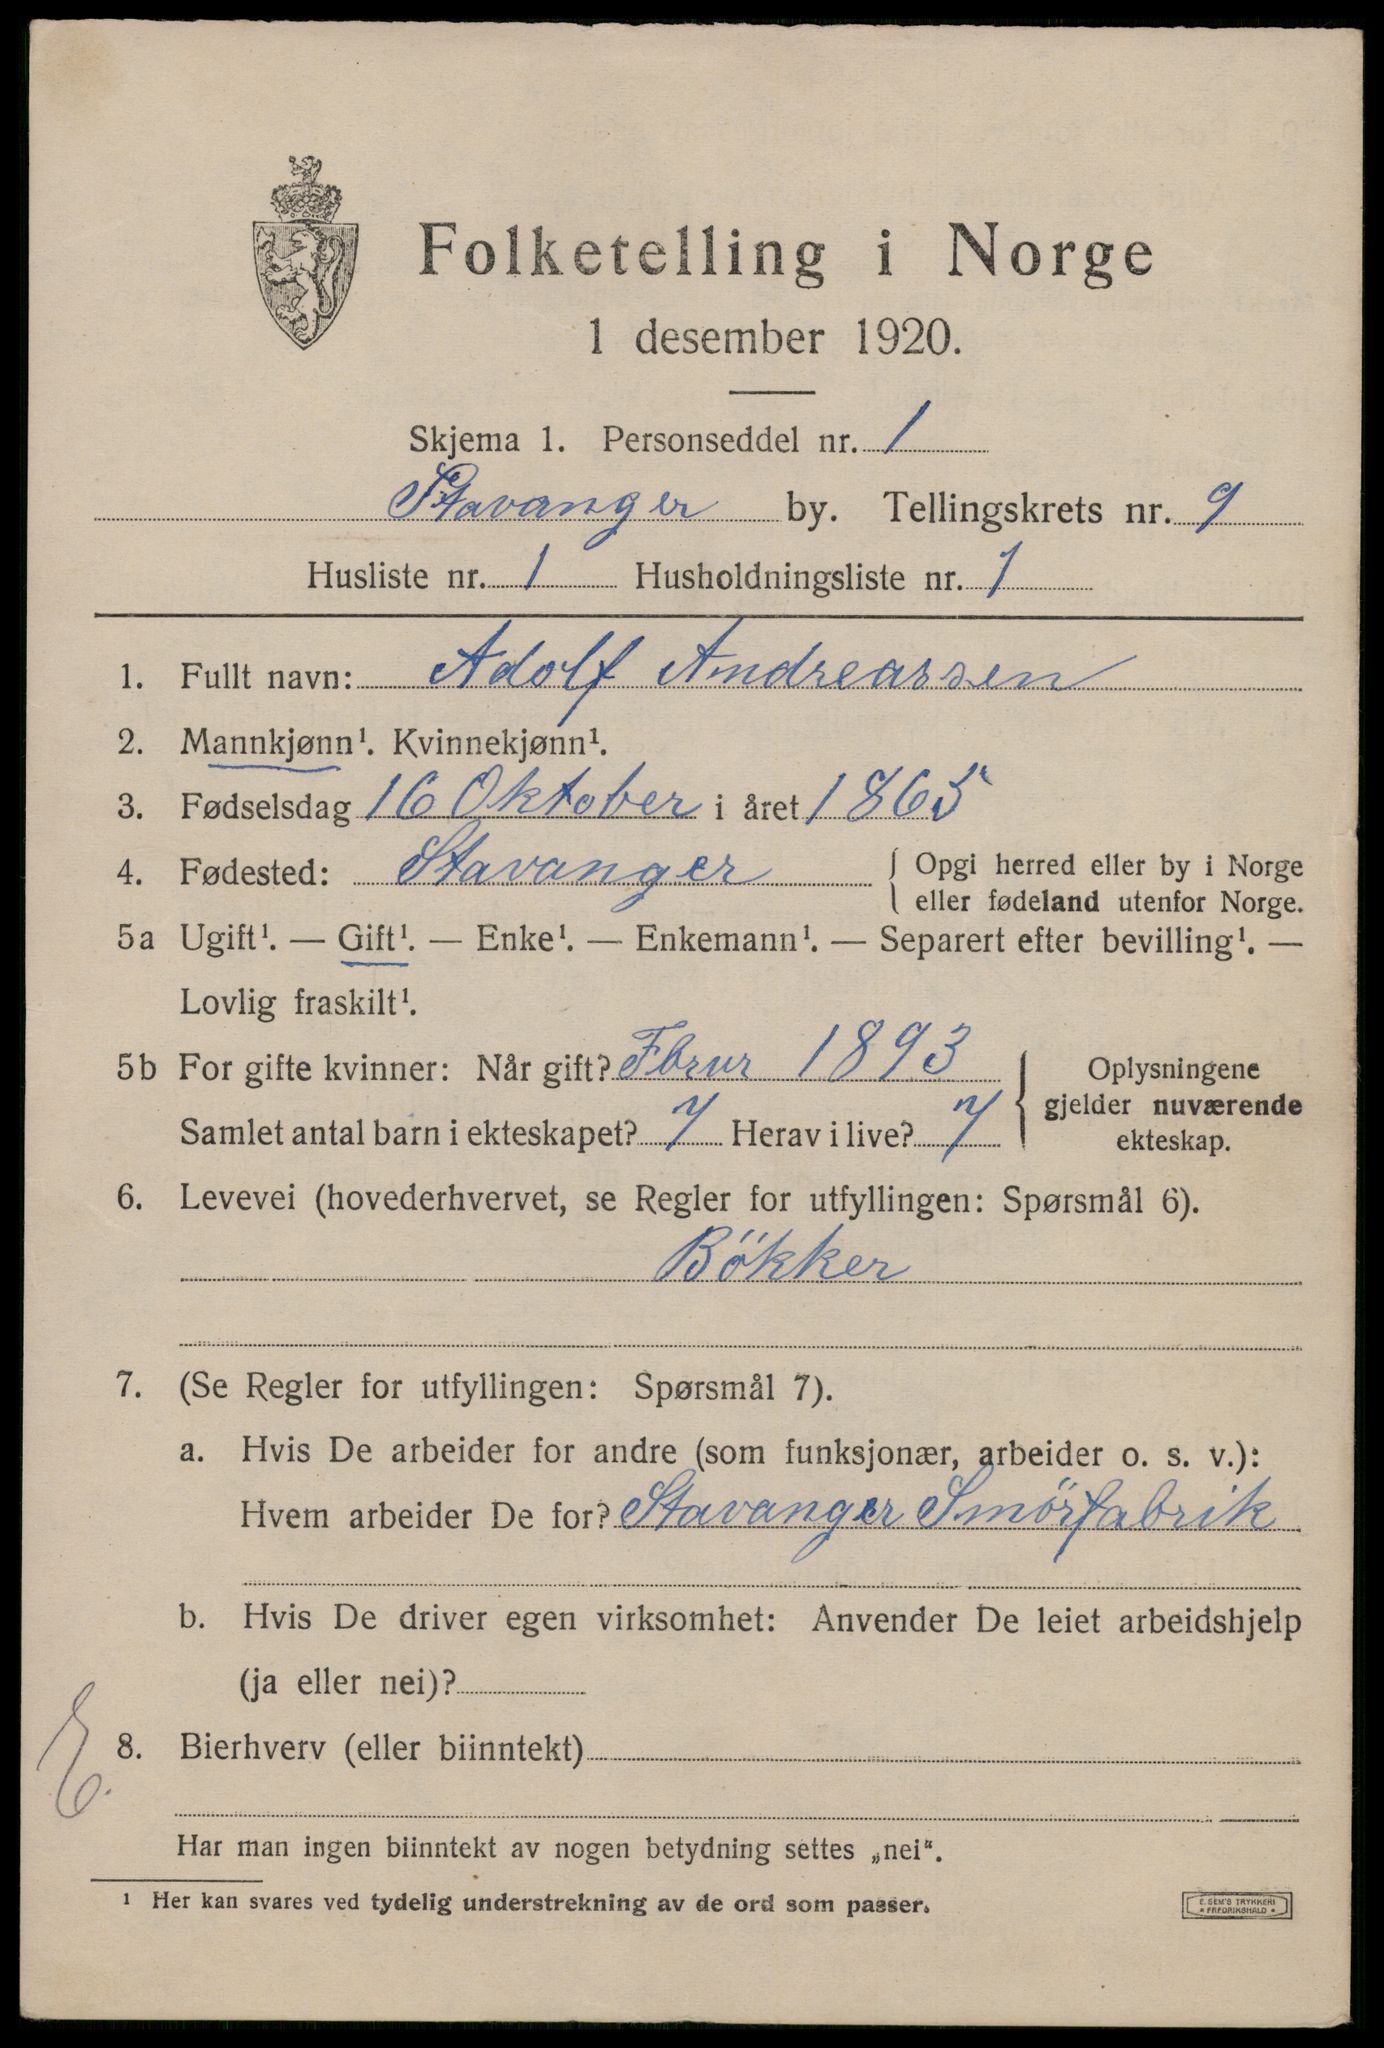 Folketelling i Norge
1 desember 1920.
Skjema 1. Personseddel nr. 1
Stavanger by. Tellingskrets nr. 9
Husliste nr. 1 Husholdningsliste nr. 1
1. Fullt navn: Adolf Andreassen
2. Mannkjønn¹. Kvinnekjønn¹.
3. Fødselsdag 16 Oktober i året 1865
4. Fødested: Stavanger { Opgi herred eller by i Norge
eller fødeland utenfor Norge.
5a Ugift¹. — Gift¹. — Enke¹. — Enkemann¹. — Separert efter bevilling¹. —
Lovlig fraskilt¹.
5b For gifte kvinner: Når gift? Fbrur 1893 } Oplysningene
gjelder nuværende
Samlet antal barn i ekteskapet? 7 Herav i live? 7 ekteskap.
6. Levevei (hovederhvervet, se Regler for utfyllingen: Spørsmål 6).
Bökker
7. (Se Regler for utfyllingen: Spørsmål 7).
a. Hvis De arbeider for andre (som funksjonær, arbeider o. s. v.):
Hvem arbeider De for? Stavanger Smörfabrik
b. Hvis De driver egen virksomhet: Anvender De leiet arbeidshjelp
(ja eller nei)?
8. Bierhverv (eller biinntekt)
Har man ingen biinntekt av nogen betydning settes „nei“.
¹ Her kan svares ved tydelig understrekning av de ord som passer.
E. SEM'S TRYKKERI
* FREDRIKSHALD *